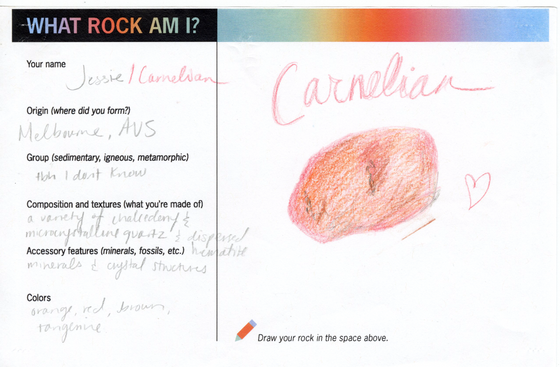 WHAT ROCK AM I?
Your name
Jessie / Carnelian
Origin (where did you form?)
Melbourne, AUS
Group (sedimentary, igneous, metamorphic)
tbh I dont know
Composition and textures (what you're made of)
a variety of chalcedony &
microcrystalline quartz & dispersed
hematite
Accessory features (minerals, fossils, etc.)
minerals & crystal structures
Colors
orange, red, brown,
tangerine
Carnelian
Draw your rock in the space above.